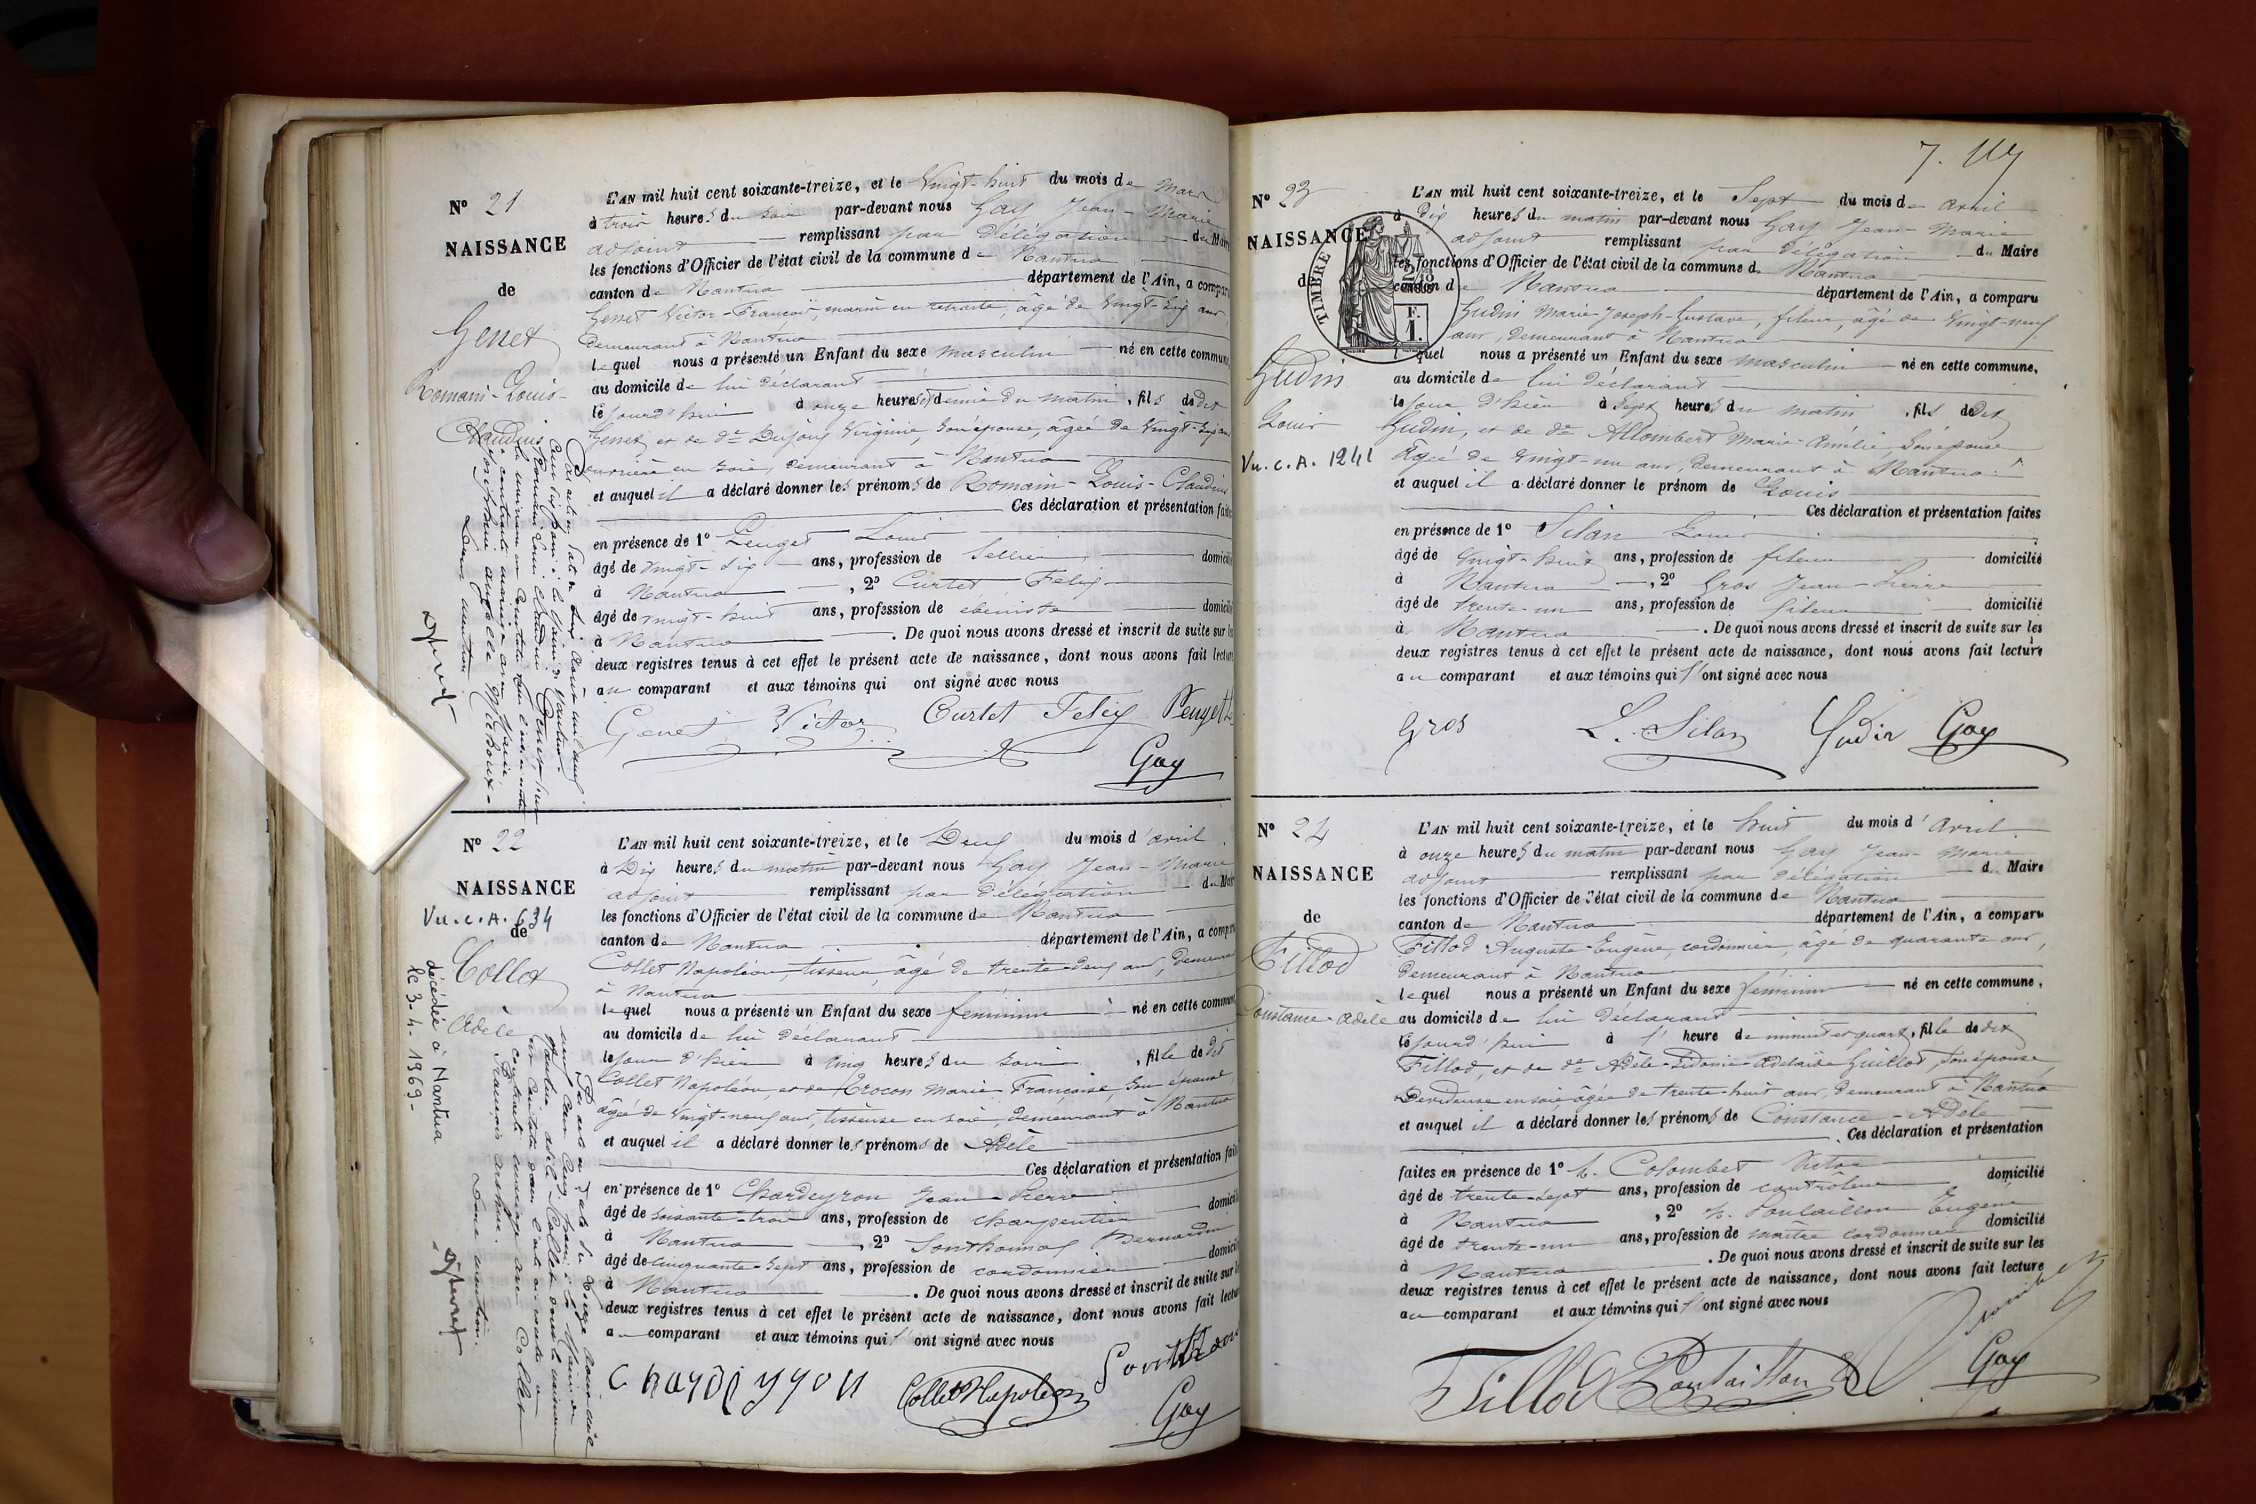 N° 21
NAISSANCE
de
Genet
Romain-Louis-
Claudius
L'AN mil huit cent soixante-treize, et le Vingt-huit du mois de Mars
à trois heures du soir par-devant nous Gay Jean-Marie
adjoint remplissant par délégation du Maire
les fonctions d'Officier de l'état civil de la commune de Nantua
canton de Nantua département de l'Ain, a comparu
Genet Victor-François, marin en retraite, âgé de Vingt-six ans,
demeurant à Nantua
lequel nous a présenté un Enfant du sexe masculin né en cette commune,
au domicile de lui déclarant
lejourd'hui à onze heures & demie du matin, fils dedit
Genet et de de Dujoux Virginie, son épouse, âgée de Vingt-six ans
ouvrière en soie, demeurant à Nantua
et auquel il a déclaré donner les prénoms de Romain-Louis-Claudius
Ces déclaration et présentation faites
en présence de 1° Peuget Louis
âgé de Vingt-six ans, profession de Sellier domicilié
à Nantua, 2° Curtet Felix
âgé de vingt-huit ans, profession de ébéniste domicilié
à Nantua. De quoi nous avons dressé et inscrit de suite sur les
deux registres tenus à cet effet le présent acte de naissance, dont nous avons fait lecture
au comparant et aux témoins qui ont signé avec nous
Genet Victor Curtet Felix Peuget L
Gay
N° 22
NAISSANCE
Vu. C. A. 634
de
Collet
Adèle
décédée à Nantua
le 3-4-1969-
Sans mention.
L'AN mil huit cent soixante-treize, et le Deux du mois d'avril
à Dix heures du matin par-devant nous Gay Jean-Marie
adjoint remplissant par délégation du Maire
les fonctions d'Officier de l'état civil de la commune de Nantua
canton de Nantua département de l'Ain, a comparu
Collet Napoléon, tisseur, âgé de trente-deux ans, demeurant
à Nantua
lequel nous a présenté un Enfant du sexe féminin né en cette commune,
au domicile de lui déclarant
lejour d'hier à cinq heures du soir, fille de dit
Collet Napoléon, et de Crocon Marie Françoise, son épouse,
âgée de Vingt-neuf ans, tisseuse en soie, demeurant à Nantua
et auquel il a déclaré donner les prénoms de Adèle
Ces déclaration et présentation faites
en présence de 1° Chardeyron Jean-Pierre
âgé de soixante-trois ans, profession de charpentier domicilié
à Nantua, 2° Sonthonnax Bernardin
âgé de cinquante-sept ans, profession de cordonnier domicilié
à Nantua. De quoi nous avons dressé et inscrit de suite sur les
deux registres tenus à cet effet le présent acte de naissance, dont nous avons fait lecture
au comparant et aux témoins qui ont signé avec nous
Collet Napoléon
Gay
7.
N° 23
NAISSANCE
de
TIMBRE
Gudin
Louis
Vu. C. A. 1241
L'AN mil huit cent soixante-treize, et le Sept du mois de avril
à dix heures du matin par-devant nous Gay Jean-Marie
adjoint remplissant par délégation du Maire
les fonctions d'Officier de l'état civil de la commune de Nantua
canton de Nantua département de l'Ain, a comparu
Gudin Marie-Joseph-Gustave, fileur, âgé de Vingt-neuf
ans, demeurant à Nantua
lequel nous a présenté un Enfant du sexe masculin né en cette commune,
au domicile de lui déclarant
lejour d'hier à Sept heures du matin, fils dedit
Gudin, et de de Allombert Marie-Amélie, son épouse
âgée de Vingt-un ans, demeurant à Nantua
et auquel il a déclaré donner le prénom de Louis
Ces déclaration et présentation faites
en présence de 1° Silan Louis
âgé de Vingt-huit ans, profession de fileur domicilié
à Nantua, 2° Gros Jean-Pierre
âgé de trente-un ans, profession de fileur domicilié
à Nantua. De quoi nous avons dressé et inscrit de suite sur les
deux registres tenus à cet effet le présent acte de naissance, dont nous avons fait lecture
au comparant et aux témoins qui ont signé avec nous
Gros L. Silan Gudin Gay
N° 24
NAISSANCE
de
Fillod
Constance-Adèle
L'AN mil huit cent soixante-treize, et le huit du mois d'Avril
à onze heures du matin par-devant nous Gay Jean-Marie
adjoint remplissant par délégation du Maire
les fonctions d'Officier de l'état civil de la commune de Nantua
canton de Nantua département de l'Ain, a comparu
Fillod Auguste-Eugène, cordonnier, âgé de quarante ans,
demeurant à Nantua
lequel nous a présenté un Enfant du sexe féminin né en cette commune,
au domicile de lui déclarant
lejourd'hui à l'heure de minuit et quart, fille dedit
Fillod, et de de Adèle-Sidonie-Adélaïde Guillot, son épouse,
Dévideuse en soie âgée de trente-huit ans, demeurant à Nantua
et auquel il a déclaré donner les prénoms de Constance-Adèle
Ces déclaration et présentation
faites en présence de 1° Colombet Victor domicilié
âgé de trente-sept ans, profession de contrôleur
à Nantua, 2° Poulaillon Eugène
âgé de trente-un ans, profession de maître cordonnier domicilié
à Nantua. De quoi nous avons dressé et inscrit de suite sur les
deux registres tenus à cet effet le présent acte de naissance, dont nous avons fait lecture
au comparant et aux témoins qui ont signé avec nous
Fillod Poulaillon
Gay